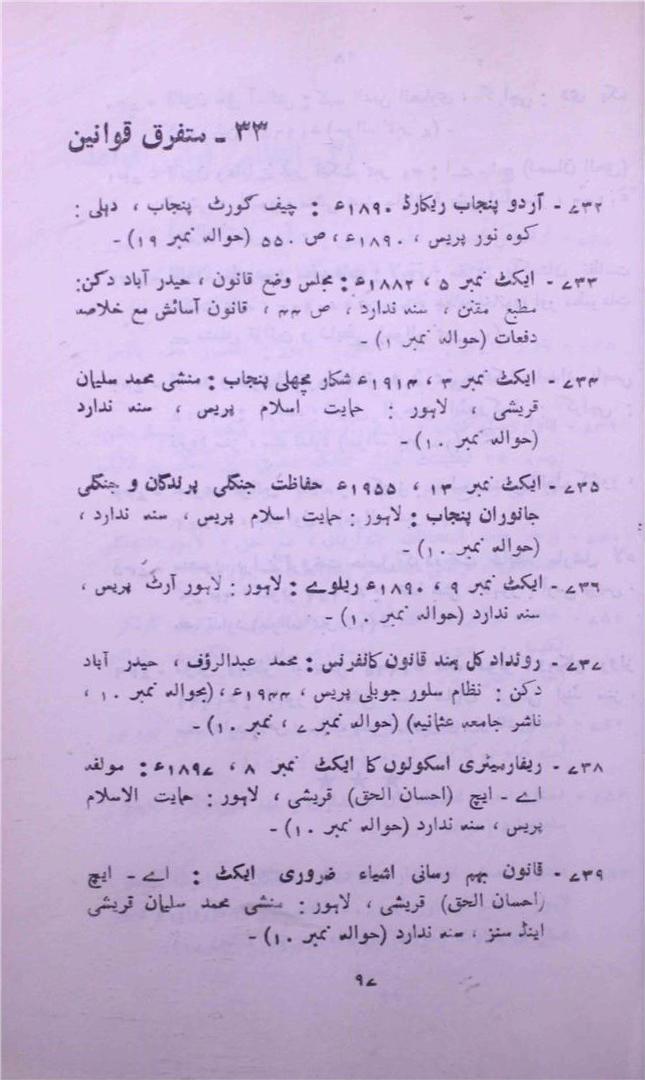 ۳۳ ۔ متفرق قوانین
۷۳۲ ۔ اردو پنجاب ریکارڈ ۱۸۹۰ء : چیف کورٹ پنجاب ، دہلی :
کوہ نور پریس ، ۱۸۹۰ء ، ص ۵۵۰ (حوالہ نمبر ۱۹) ۔
۷۳۳ ۔ ایکٹ نمبر ۵ ، ۱۸۸۲ء : مجلس وضع قانون ، حیدر آباد دکن :
مطبع مقنن ، سنہ ندارد ، ص ۴۴ ، قانون آسائش مع خلاصہ
دفعات (حوالہ نمبر ۱) ۔
۷۳۴ ۔ ایکٹ نمبر ۳ ، ۱۹۱۴ء شکار مچھلی پنجاب : منشی محمد سلیمان
قریشی ، لاہور : حمایت اسلام پریس ، سنہ ندارد
(حوالہ نمبر ۱۰) ۔
۷۳۵ ۔ ایکٹ نمبر ۱۳ ، ۱۹۵۵ء حفاظت جنگلی پرندگان و جنگلی
جانوران پنجاب : لاہور : حمایت اسلام پریس ، سنہ ندارد ،
(حوالہ نمبر ۱۰) ۔
۷۳۶ ۔ ایکٹ نمبر ۹ ، ۱۸۹۰ء ریلوے : لاہور : لاہور آرٹ پریس ،
سنہ ندارد (حوالہ نمبر ۱۰) ۔
۷۳۷ ۔ روئداد کل ہند قانون کانفرنس : محمد عبدالرؤف ، حیدر آباد
دکن : نظام سلور جوبلی پریس ، ۱۹۴۴ء ، (بحوالہ نمبر ۱۰ ،
ناشر جامعہ عثمانیہ) (حوالہ نمبر ۷ ، نمبر ۱۰) ۔
۷۳۸ ۔ ریفارمیٹری اسکولوں کا ایکٹ نمبر ۸ ، ۱۸۹۷ء : مولفہ
اے ۔ ایچ (احسان الحق) قریشی ، لاہور : حمایت الاسلام
پریس ، سنہ ندارد (حوالہ نمبر ۱۰) ۔
۷۳۹ ۔ قانون بہم رسانی اشیاء ضروری ایکٹ : اے ۔ ایچ
(احسان الحق) قریشی ، لاہور : منشی محمد سلیمان قریشی
اینڈ سنز ، سنہ ندارد (حوالہ نمبر ۱۰) ۔
۹۷